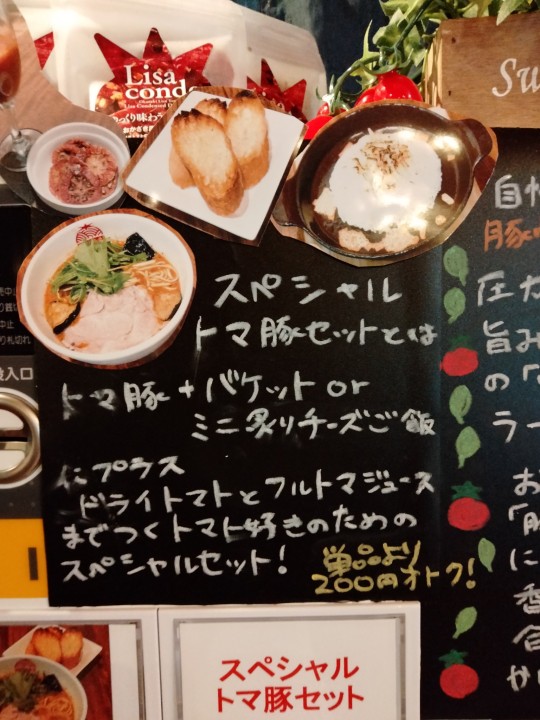 Lisa
スペシャル
トマ豚セットとは
トマ豚+バケットor
ミニ炙りチーズご飯
にプラス
ドライトマトとフルトマジュース
までつくトマト好きのための
スペシャルセット!
単品より
200円オトク!
スペシャル
トマ豚セット
Su
自
豚
圧力
旨み
の「
ラー
お
「豚
に
香
合
か